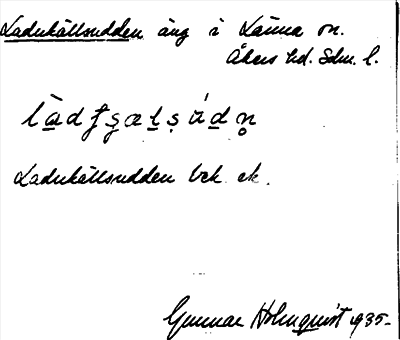 Ladukällsudden äng i Länna sn.
Åkers hd. Sdm. l.
Ladukällsudden bek. ek.
Gunnar Holmquist 1935-